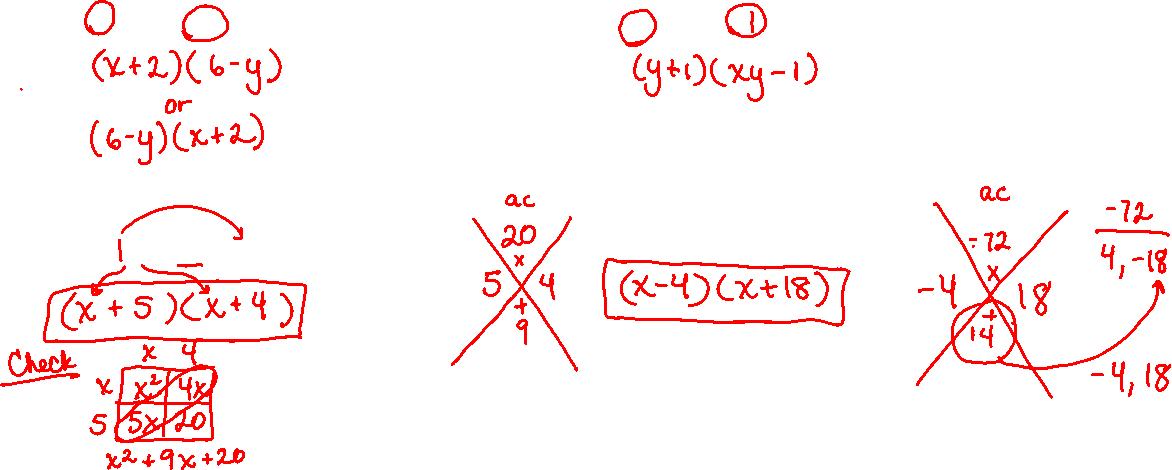 1
(x+2)(6-y)
or
(6-y)(x+2)
(y+1)(xy-1)
(x+5)(x+4)
Check
x 4
x x² 4x
5 5x 20
x²+9x+20
ac
20
x
5 4
+
9
(x-4)(x+18)
ac
-72
x
-4 18
+
14
-72
4, -18
-4, 18